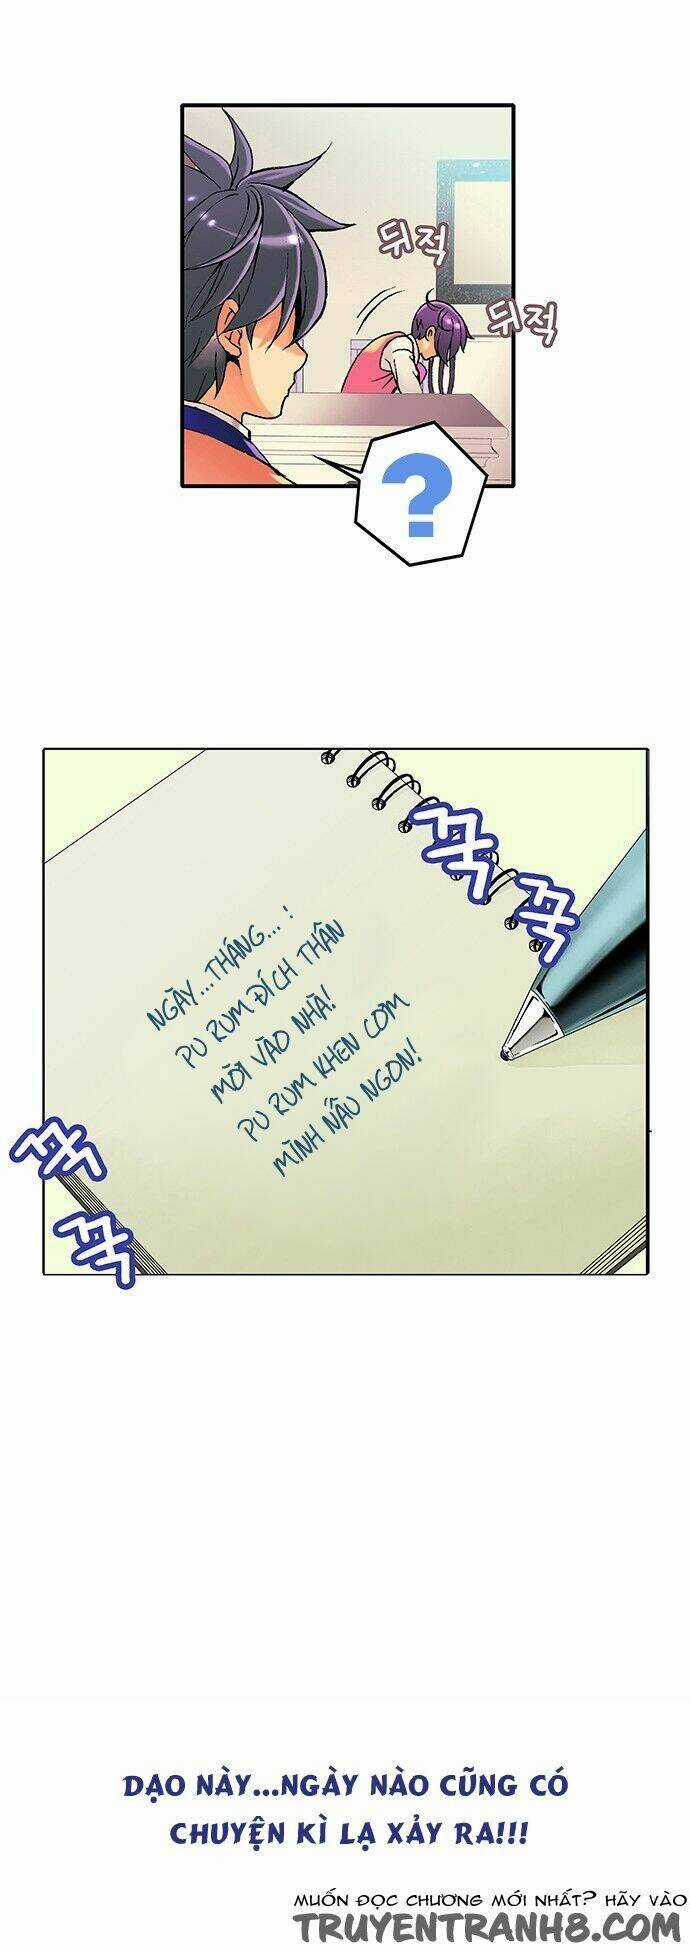 뒤적
뒤적
?
꾹
꾹
NGÀY...THÁNG... !
PU RUM ĐÍCH THÂN
MỜI VÀO NHÀ!
PU RUM KHEN CƠM
MÌNH NẤU NGON!
꾹
꾹
DẠO NÀY...NGÀY NÀO CŨNG CÓ
CHUYỆN KÌ LẠ XẢY RA!!!
MUỐN ĐỌC CHƯƠNG MỚI NHẤT? HÃY VÀO
TRUYENTRANH8.COM